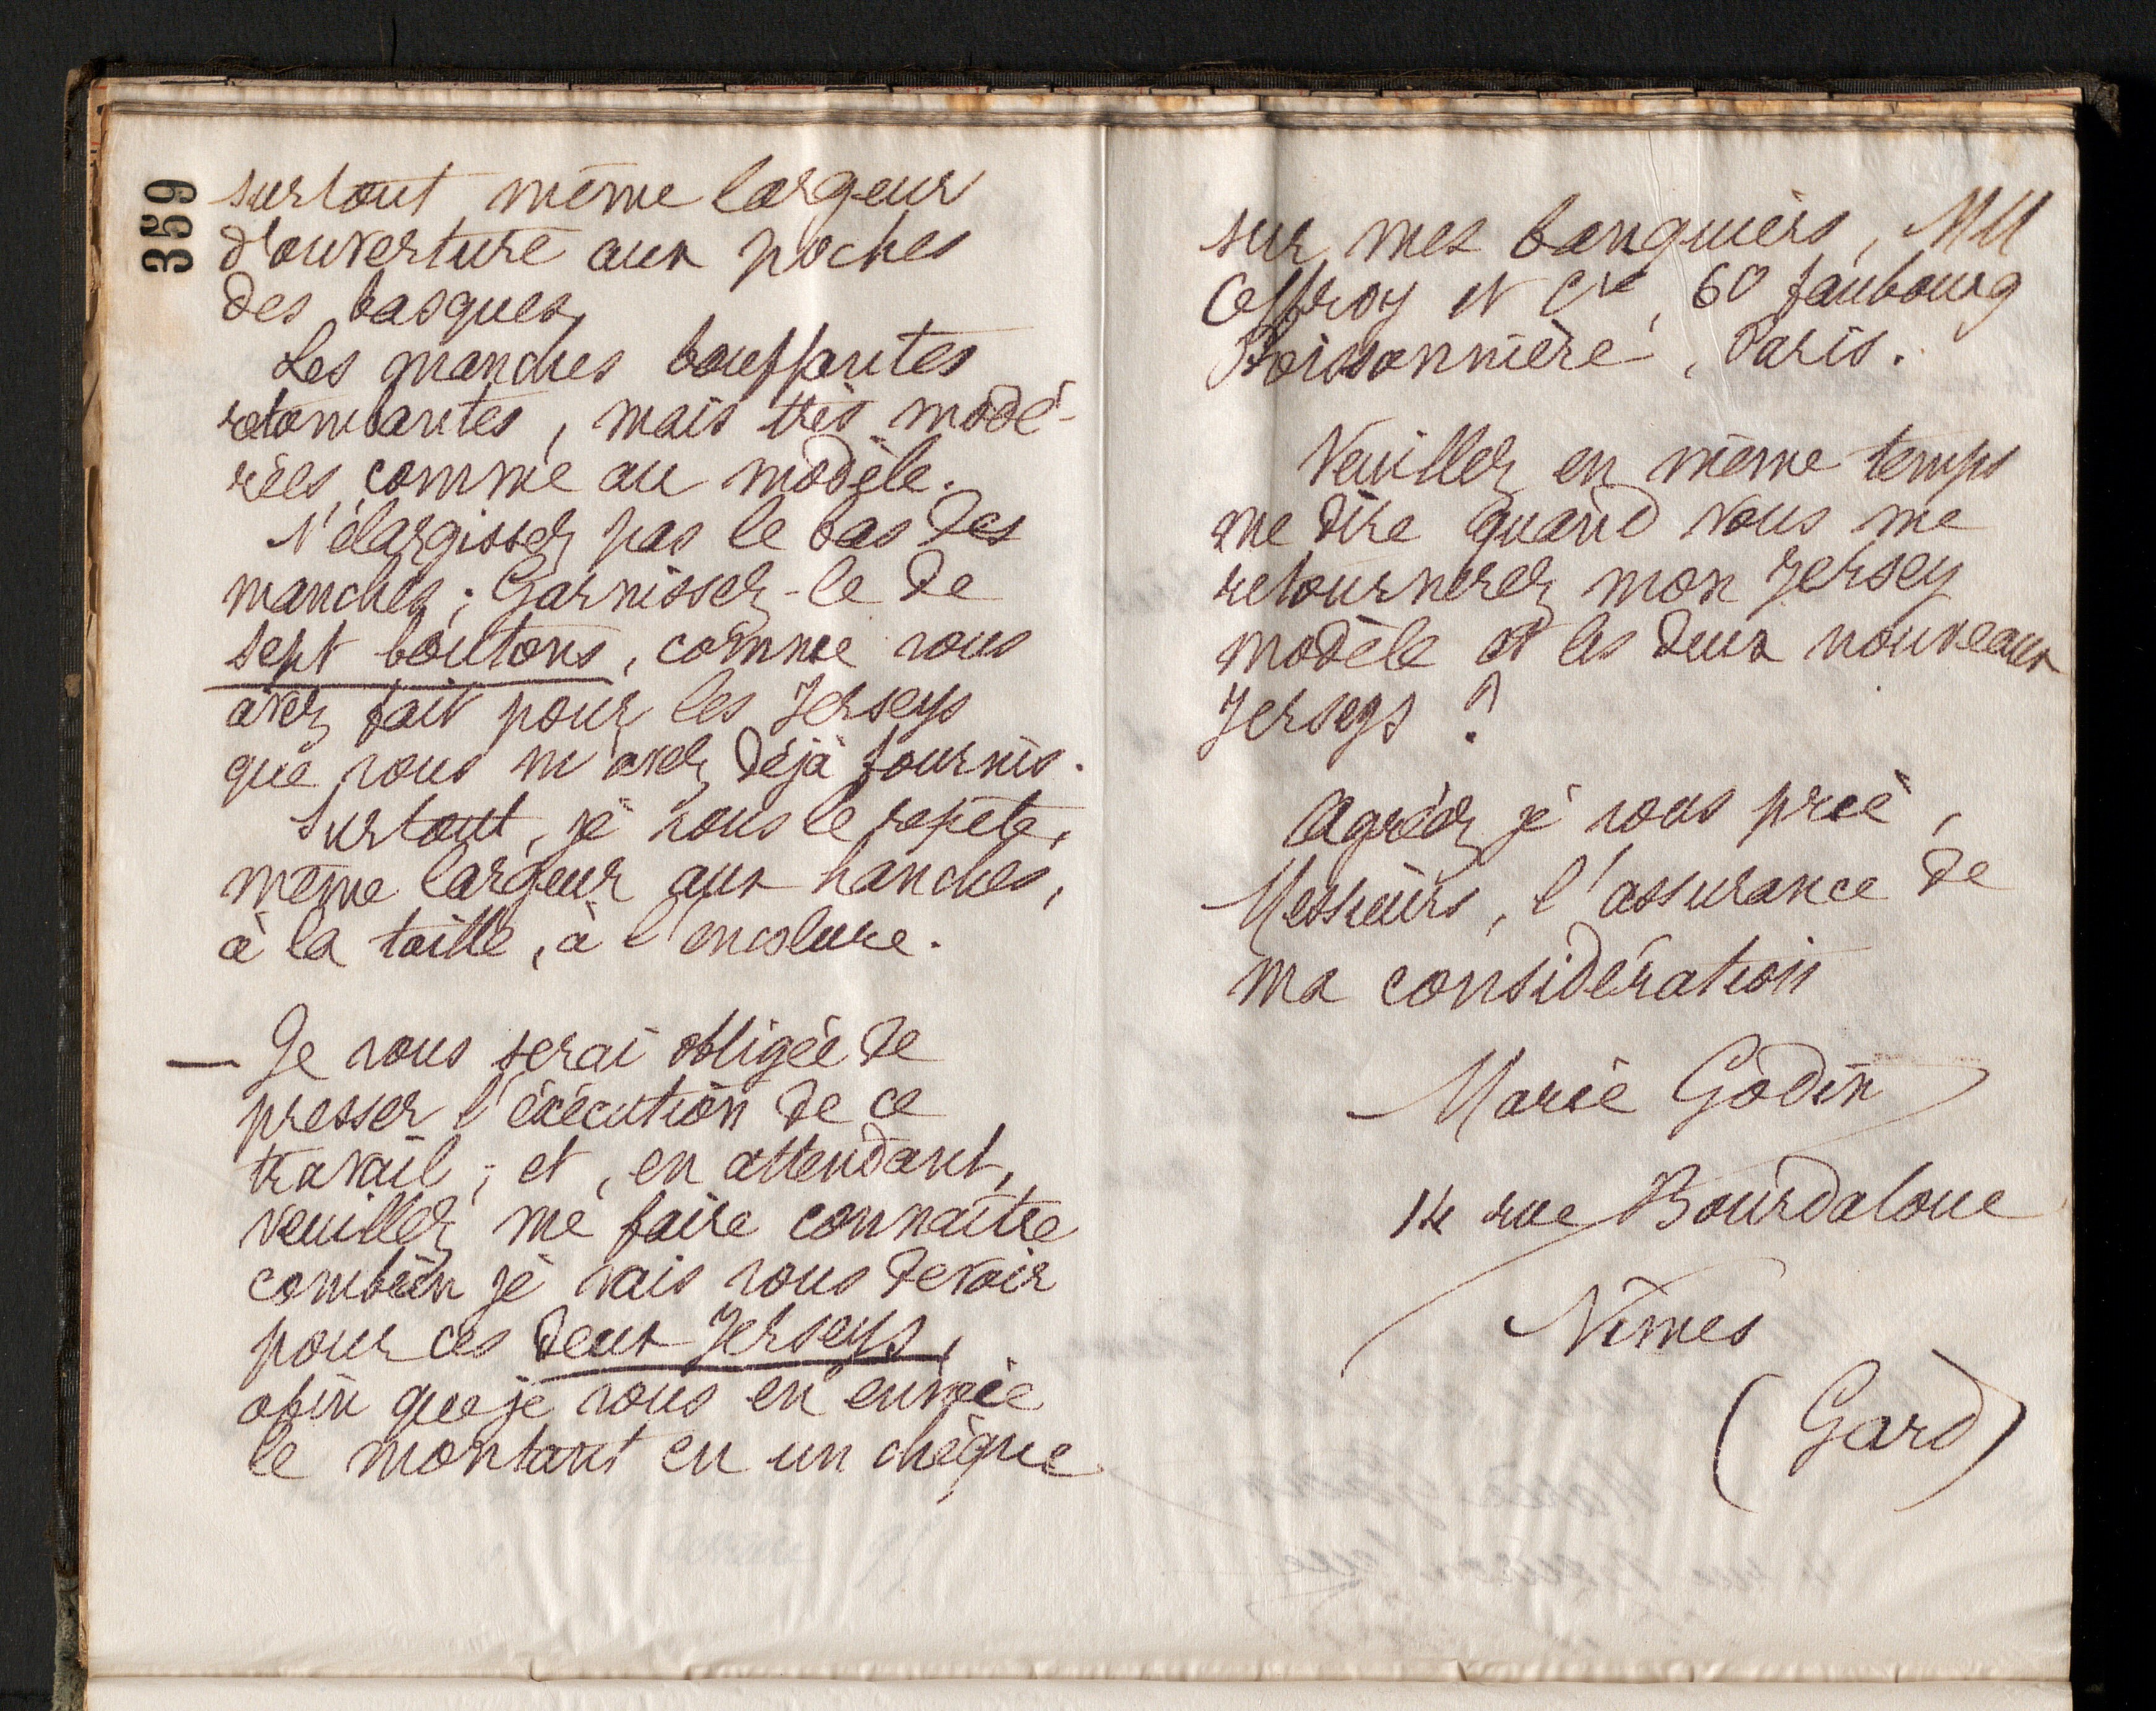 359
surtout même largeur
d'ouverture aux poches
des basques,
Les manches bouffantes
retombantes, mais très modé-
rées, comme au modèle.
N'élargissez pas le bas des
manches; Garnissez-le de
sept boutons, comme vous
avez fait pour les Jerseys
que vous m'avez déjà fournis.
Surtout, je vous le répète,
même largeur aux hanches,
à la taille, à l'encolure.
— Je vous serai obligée de
presser l'exécution de ce
travail; et, en attendant,
veuillez me faire connaître
combien je vais vous devoir
pour ces deux Jerseys,
afin que je vous en envoie
le montant en un chèque
sur mes banquiers, MM
Ceffroy et Cie, 60 faubourg
Poissonnière, Paris.
Veuillez en même temps
me dire quand vous me
retournerez mon Jersey
modèle et les deux nouveaux
Jerseys ?
Agréez je vous prie,
Messieurs, l'assurance de
ma considération
Marie Godin
14 rue Bourdaloue
Nîmes
(Gard)